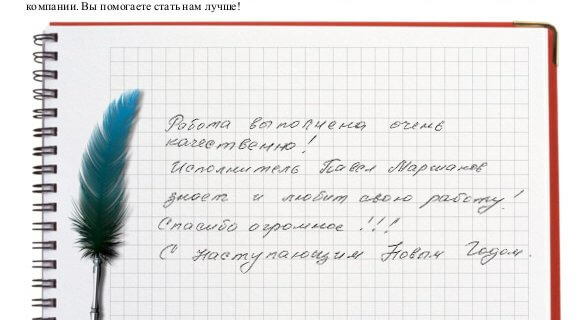 компании. Вы помогаете стать нам лучше!
Работа выполнена очень
качественно!
Исполнитель Павел Маршаков
знает и любит свою работу!
Спасибо огромное!!!
С наступающим Новым Годом.